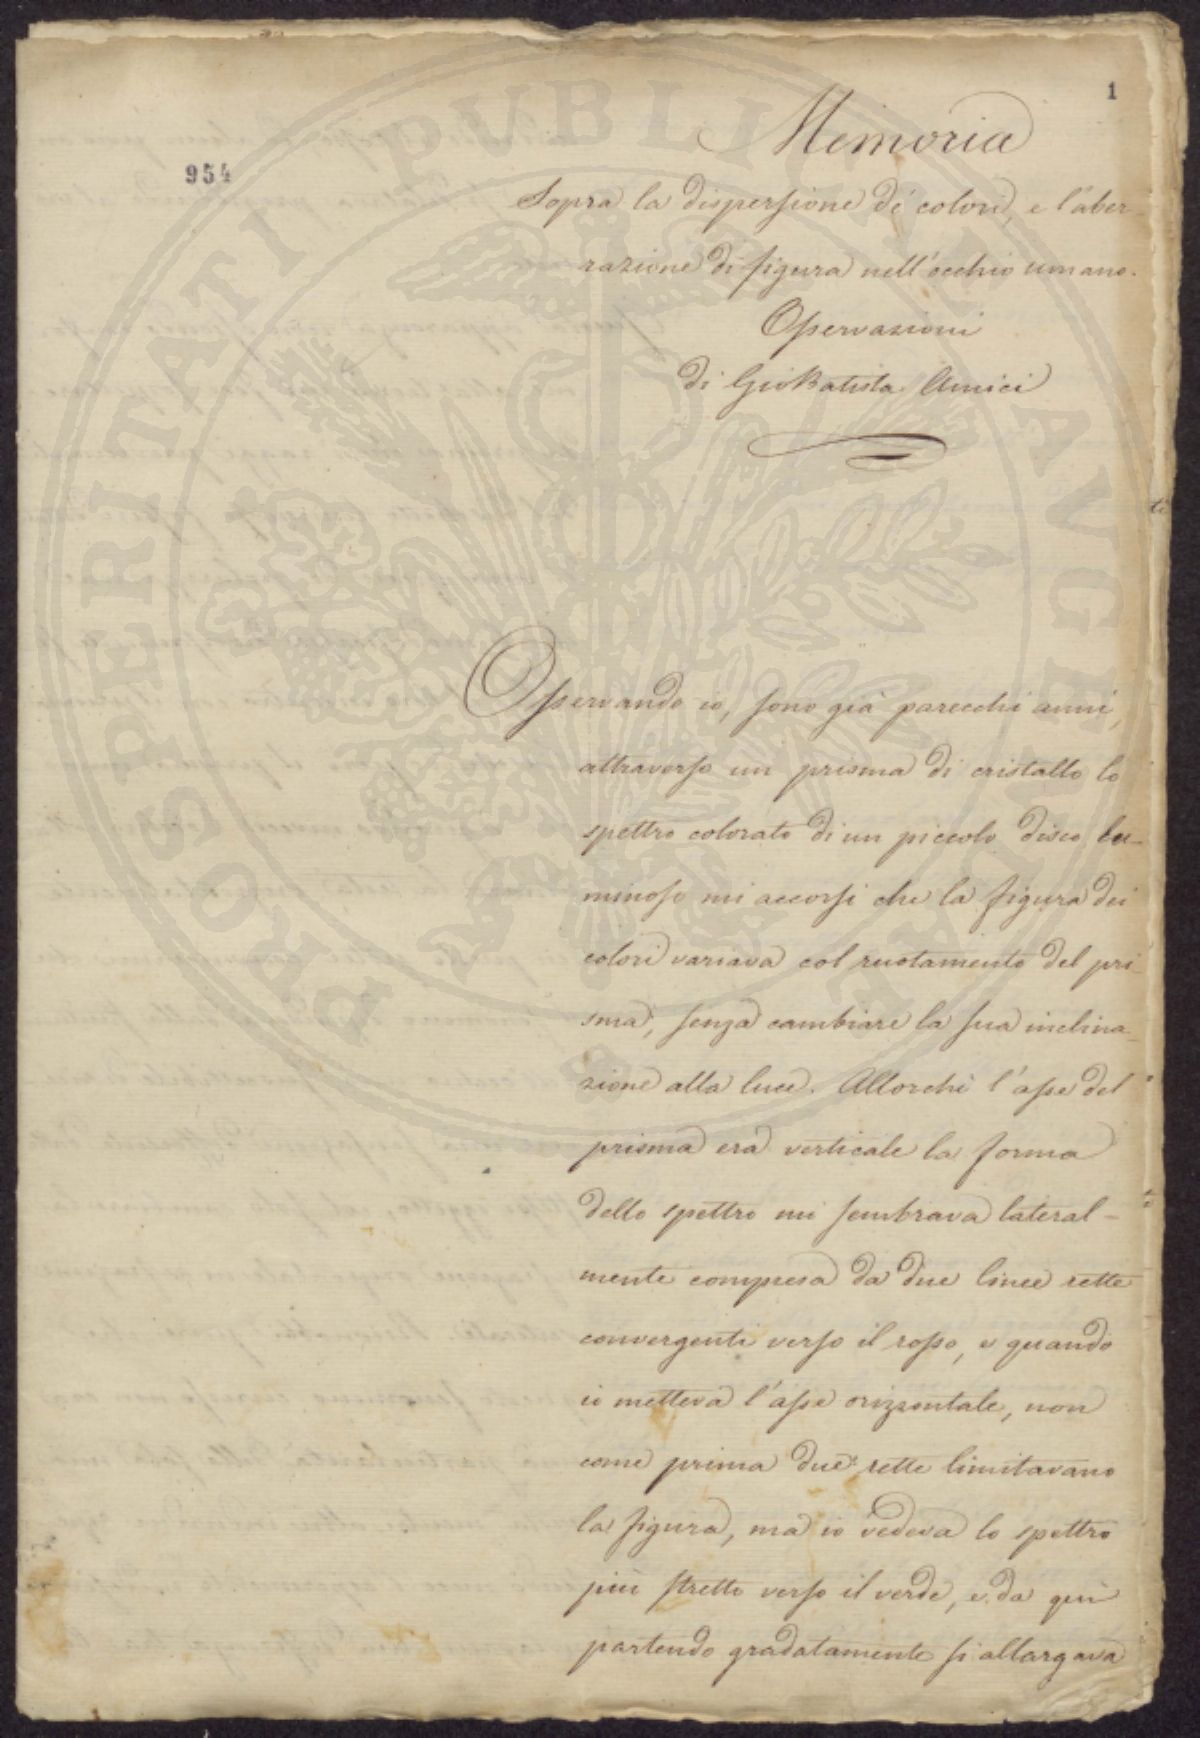 1
Memoria
954
Sopra la dispersione de' colori, e l'aber-
razione di figura nell'occhio umano.
Osservazioni
di Gio Batista Amici
Osservando io, sono già parecchi anni,
attraverso un prisma di cristallo lo
spettro colorato di un piccolo disco lu-
minoso mi accorsi che la figura dei
colori variava col ruotamento del pri-
sma, senza cambiare la sua inclina-
zione alla luce. Allorchè l'asse del
prisma era verticale la forma
dello spettro mi sembrava lateral-
mente compresa da due linee rette
convergenti verso il rosso, e quando
io metteva l'asse orizzontale, non
come prima due rette limitavano
la figura, ma io vedeva lo spettro
più stretto verso il verde, e da quì
partendo gradatamente si allargava
PROSPERITATI PUBLICAE AUGENDAE